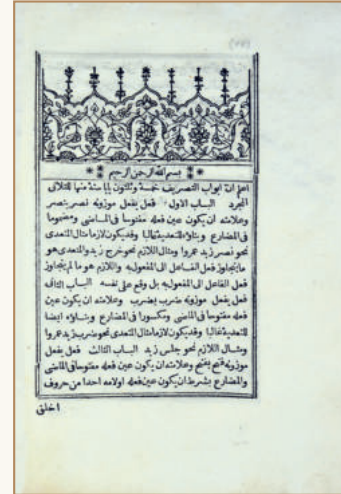 بسم الله الرحمن الرحيم
اعلم ان ابواب التصريف خمسة وثلثون بابا ستة منها للثلاثى
المجرد الباب الاول فعل يفعل موزونه نصر ينصر
وعلامته ان يكون عين فعله مفتوحا فى الماضى ومضموما
فى المضارع وبناؤه للتعدية غالبا وقد يكون لازما مثال المتعدى
نحو نصر زيد عمروا ومثال اللازم نحو خرج زيد والمتعدى هو
ما يتجاوز فعل الفاعل الى المفعول به واللازم هو ما لم يتجاوز
فعل الفاعل الى المفعول به بل وقع على نفسه الباب الثانى
فعل يفعل موزونه ضرب يضرب وعلامته ان يكون عين
فعله مفتوحا فى الماضى ومكسورا فى المضارع وبناؤه ايضا
للتعدية غالبا وقد يكون لازما مثال المتعدى نحو ضرب زيد عمروا
ومثال اللازم نحو جلس زيد الباب الثالث فعل يفعل
موزونه فتح يفتح وعلامته ان يكون عين فعله مفتوحا فى الماضى
والمضارع بشرط ان يكون عين فعله او لامه احدا من حروف
الحلق